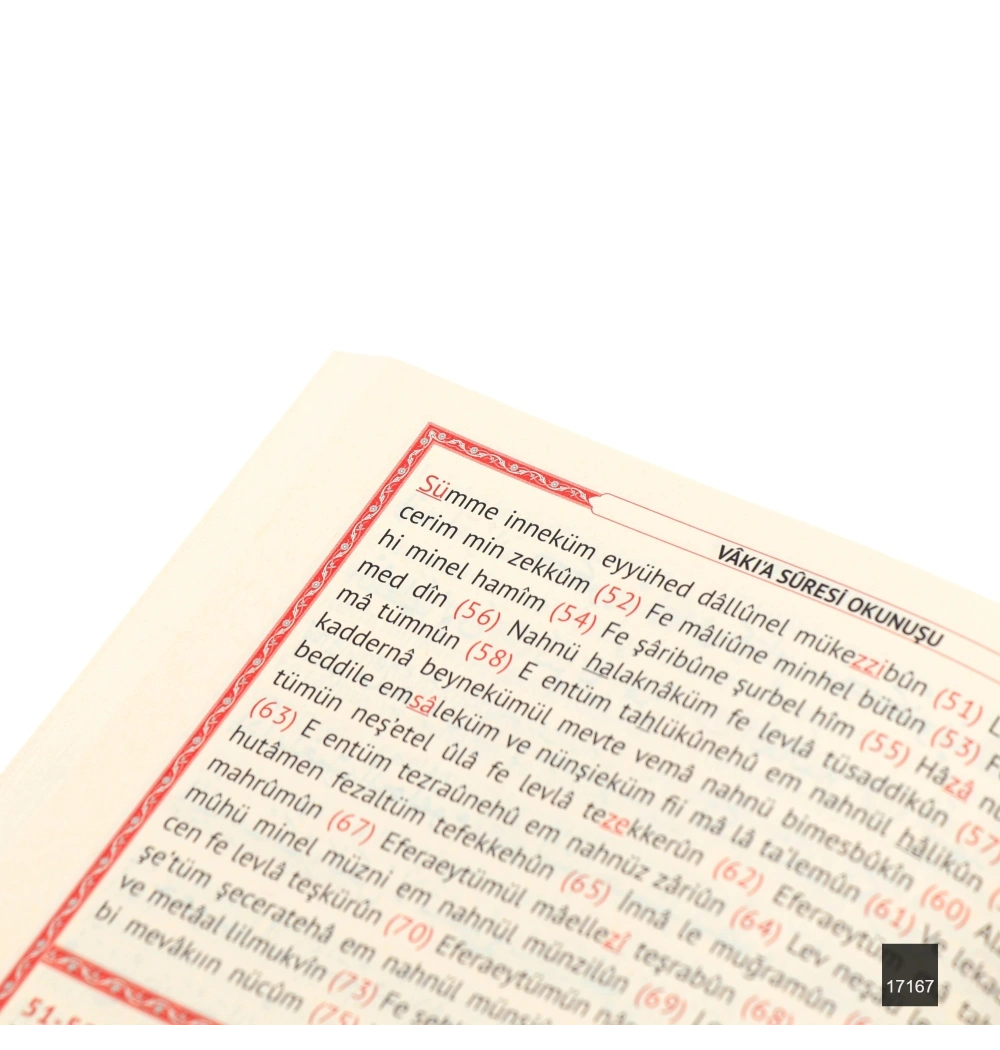 VÂKI'A SÛRESİ OKUNUŞU
Sümme inneküm eyyühed dâllûnel mükezzibûn (51)
cerim min zekkûm (52) Fe mâliûne minhel bütûn (53)
hi minel hamîm (54) Fe şâribûne şurbel hîm (55) Hâzâ
med dîn (56) Nahnü halaknâküm fe levlâ tüsaddikûn (57)
mâ tümnûn (58) E entüm tahlükûnehû em nahnül hâlikûn
kaddernâ beynekümül mevte vemâ nahnü bimesbûkîn (60)
beddile emsâleküm ve nünşieküm fîi mâ lâ ta'lemûn (61)
tümün neş'etel ûlâ fe levlâ tezekkerûn (62)
(63) E entüm tezraûnehû em nahnüz zâriûn (64) Lev
hutâmen fezaltüm tefekkehûn (65) İnnâ le muğramûn
mahrûmûn (67) Eferaeytümül mâellezî teşrabûn (68)
mûhü minel müzni em nahnül münzilûn (69)
cen fe levlâ teşkürûn (70) Eferaeytümün
şe'tüm şeceratehâ em nahnül
ve metâal lilmukvîn (73) Fe
bi mevâkıın nücûm (75)
17167